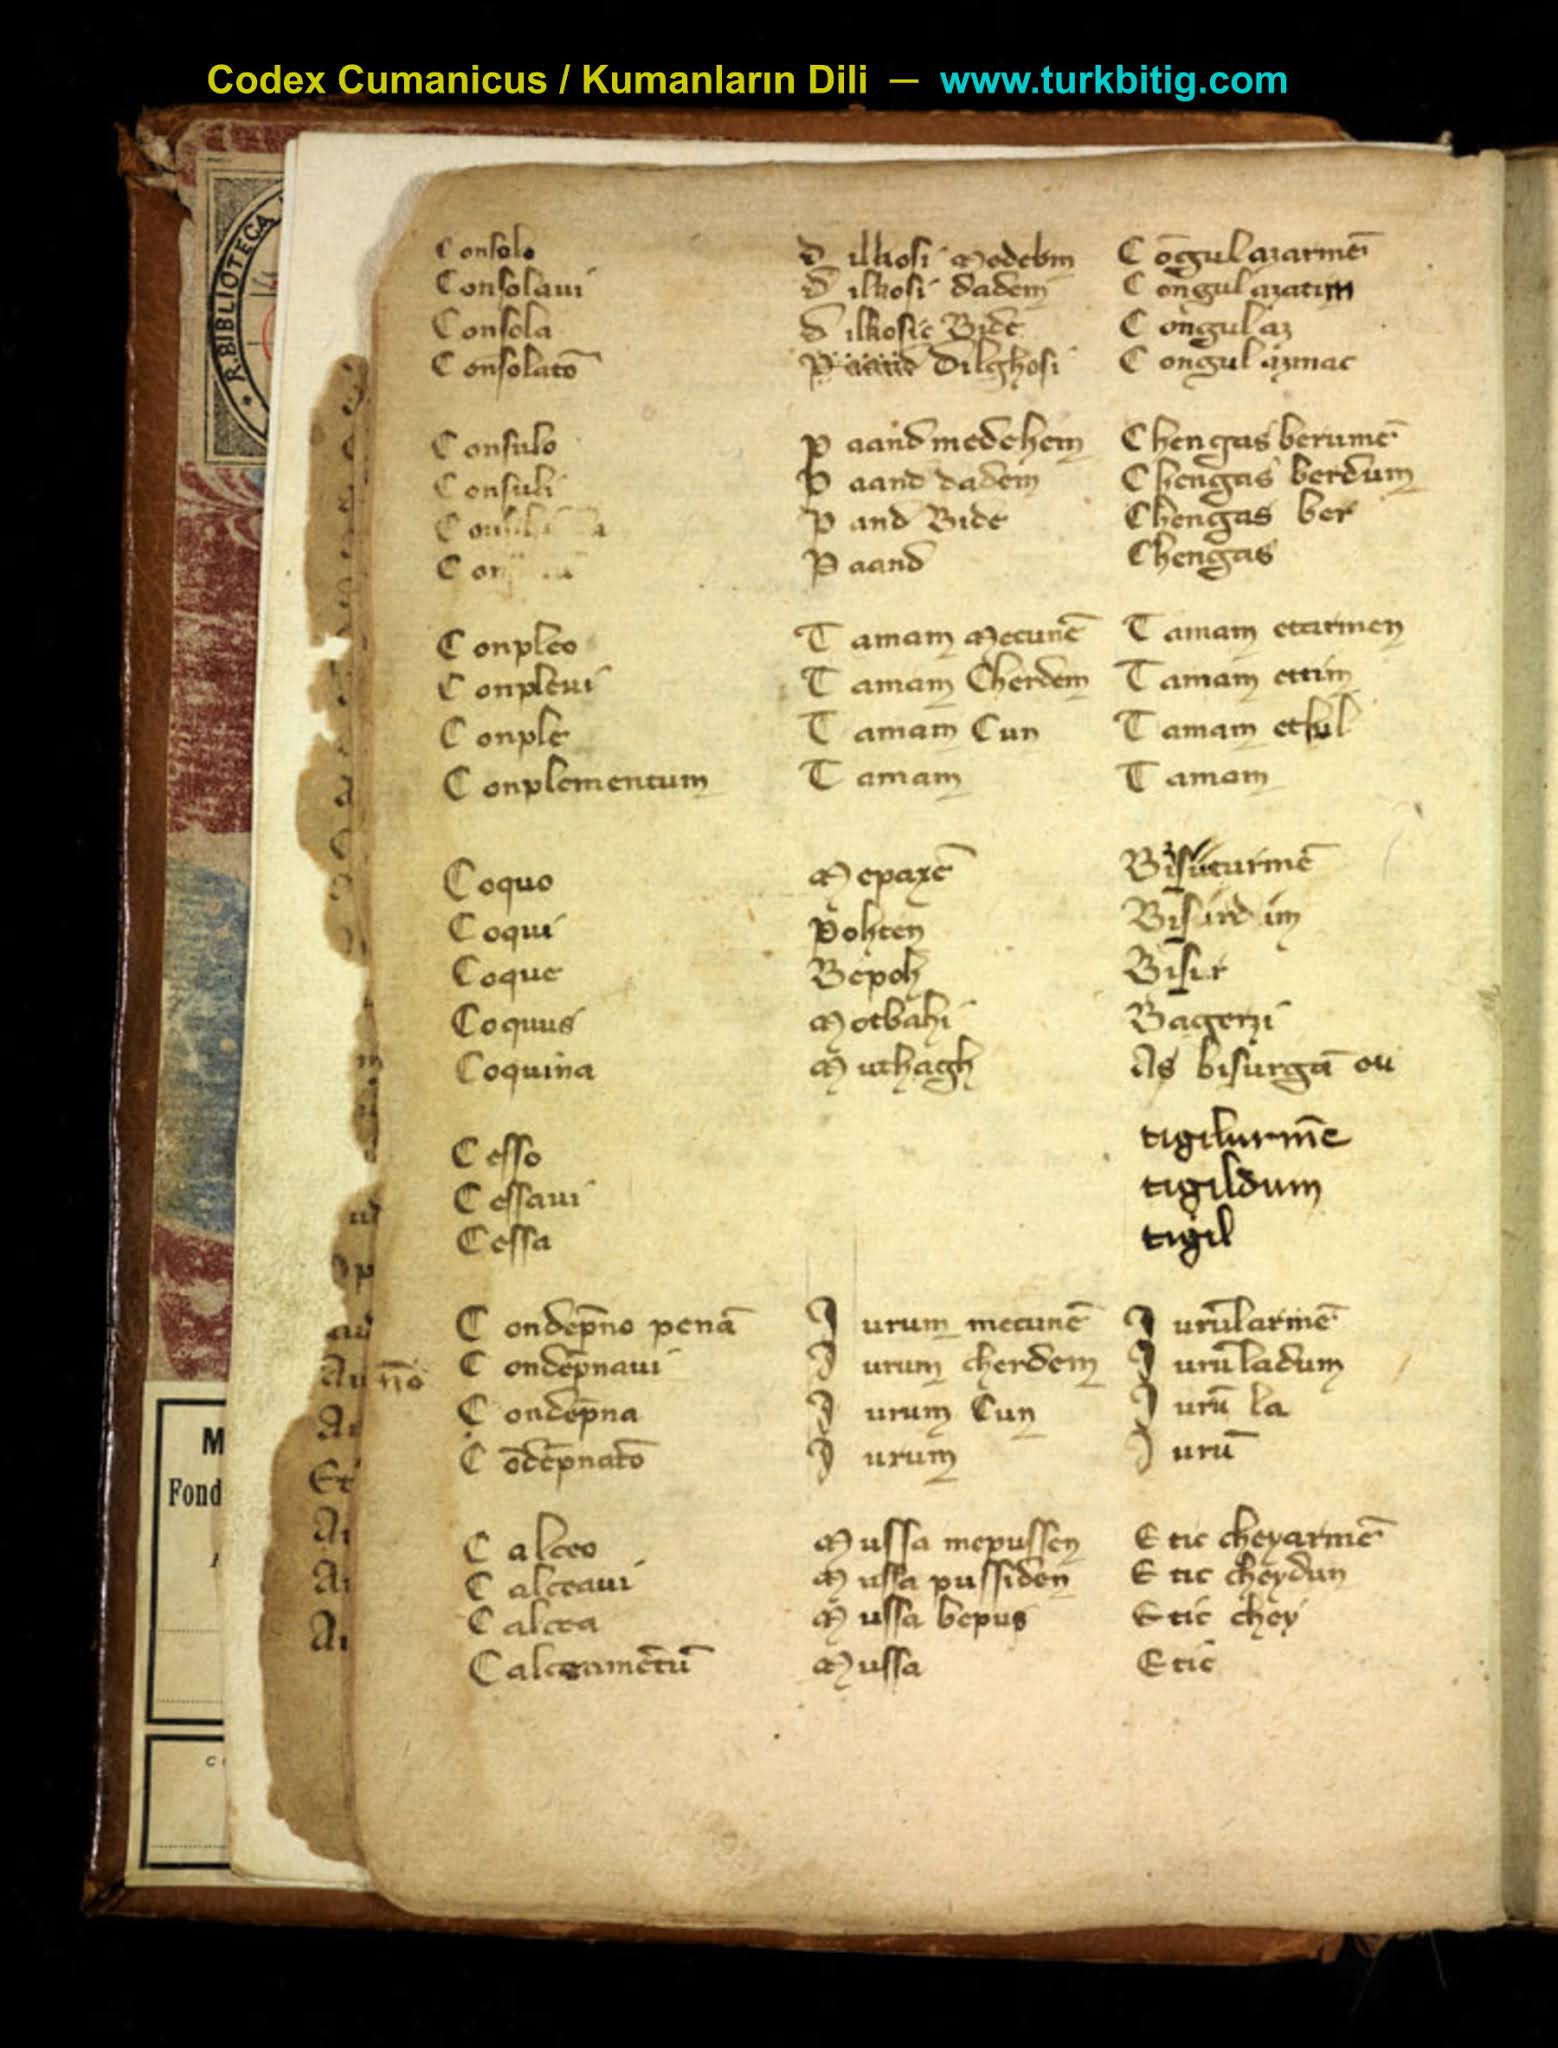 Codex Cumanicus / Kumanların Dili — www.turkbitig.com
R. BIBLIOTECA
Consolo dilkosi medehm Cōgul azarmē
Consolaui dilkosi dadem Congul azatim
Consola dilkosi Bide Congul az
Consolatō Dilghosi Congul azmac
Consulo paand medehem Chengas berumē
Consului paand dadem Chengas berdum
pand Bide Chengas ber
Paand Chengas
Conpleo Tamam mecunē Tamam etarmen
Conpleui Tamam Cherdem Tamam ettim
Conple Tamam Cun Tamam etkil
Conplementum Tamam Tamam
Coquo Mepaxē Bisurturmē
Coqui pohten Bisurdim
Coque Bepoh Bisur
Coquus Motbahi Bagerzi
Coquina Muthagh As bisurgā ou
Cesso tigilurmēe
Cessaui tigildum
Cessa tigil
Condēpno penā Jurum mecunē Jurūlarmē
Condēpnaui Jurum cherdem Jurūladum
Condēpna Jurum Cun Jurū la
Cōdēpnatō Jurum Jurū
Calceo Mussa mepussen Etic cheyarmē
Calceaui Mussa pussiden Etic cheydun
Calcea Mussa bepus Etic chey
Calceamētū Mussa Etic
M
Fond